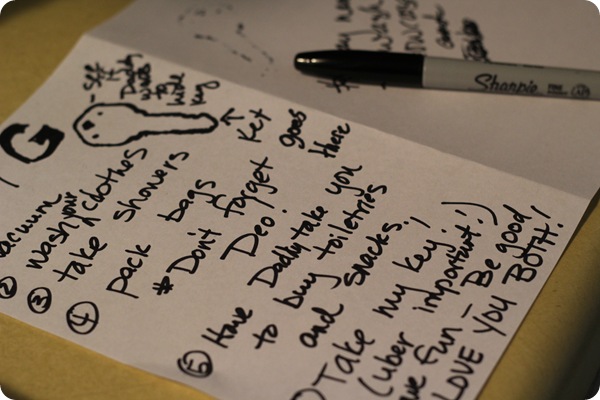 G
- See if Daddy
wants
to hide
key
Key goes
there
vacuum
② wash your clothes
③ take showers
④ pack bags
* Don't forget
Deo!
⑤ Have Daddy take you
to buy toiletries
and snacks.
Take my key!
(uber important!)
Fun - Be good
LOVE YOU BOTH!
Sharpie
wash